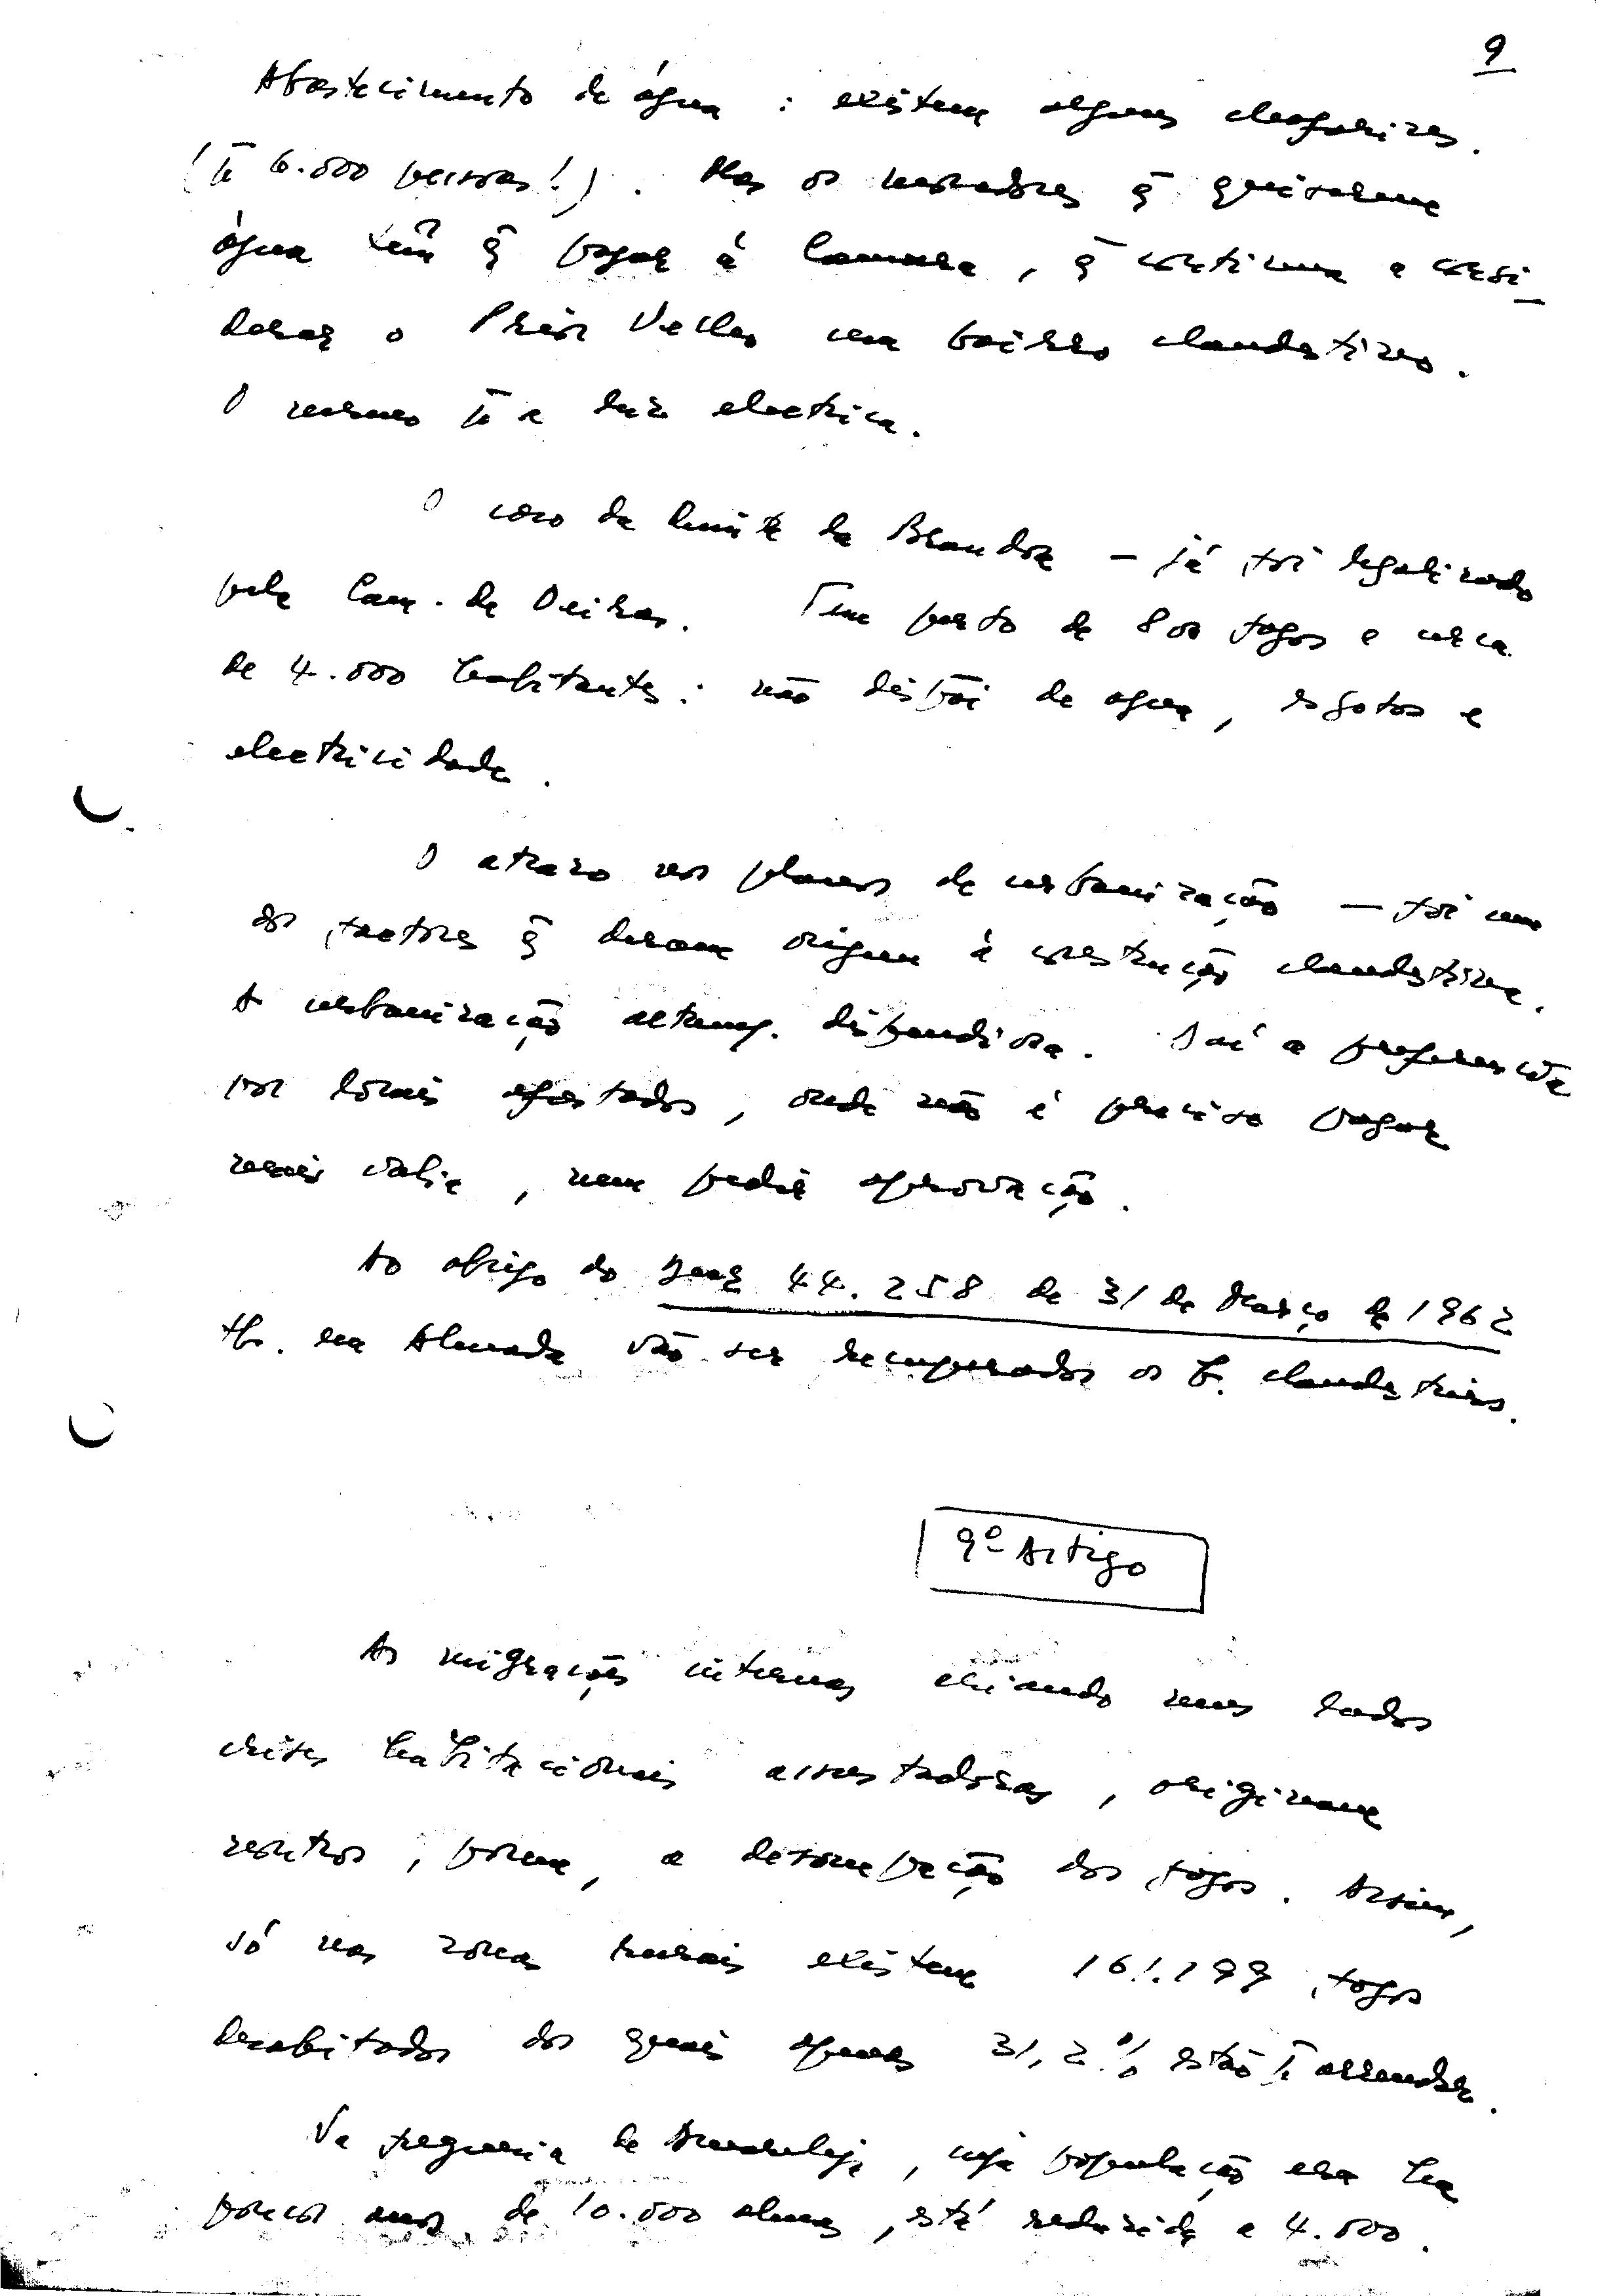 9
Abastecimento de água : existem alguns chafarizes.
(p̄ 6.000 pessoas!). Mas os moradores q̄ quiserem
água têm q̄ pagar à Camara, q̄ continua a consi-
derar o Prior Velho um bairro clandestino.
O mesmo p̄ a luz electrica.
O caso da limite da Brandoa – já foi legalizado
pela Cam. de Oeiras. Tem perto de 800 fogos e cerca
de 4.000 habitantes: não dispõi de agua, esgotos e
electricidade.
O atrazo nos planos de urbanização – foi um
dos factores q̄ deram origem à construção clandestina.
A urbanização altam. dispendiosa. Daí a preferencia
por locais afastados, onde não é preciso pagar
mais valia, nem pedir aprovação.
Ao abrigo do 44.258 de 31 de Março de 1962
tb. em Almada vão ser recuperados os b. clandestinos.
9º Artigo
As migrações internas criando nuns lados
crises habitacionais assustadoras, originam
noutros, porem, a desocupação dos fogos. Assim,
só nas zonas rurais existem 161.199 fogos
desabitados dos quais apenas 31,2% estão p̄ arrendar.
Na freguesia de , cuja população era ha
poucos anos de 10.000 almas, está reduzida a 4.000.